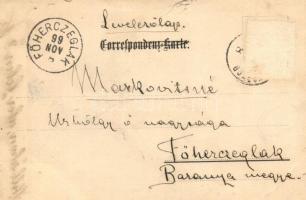 Levelezőlap.
Correspondenz-Karte.
FŐHERCZEGLAK
99
NOV
5
Markovitsné
Urhölgy ő nagysága
Főherczeglak
Baranya megye.